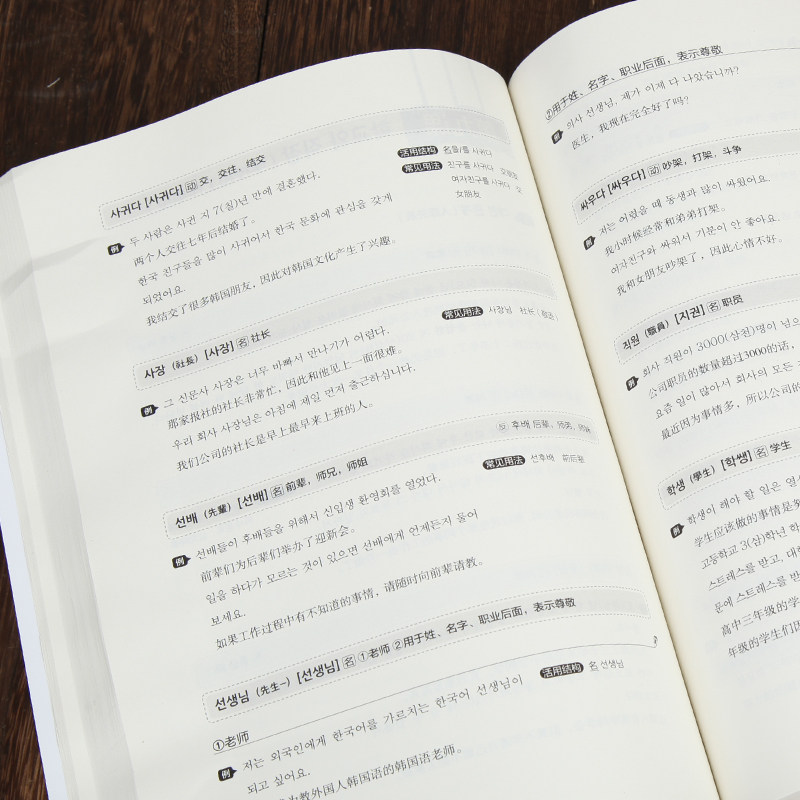 사귀다 [사귀다] 动 交，交往，结交
活用结构 名를/를 사귀다
例 두 사람은 사귄 지 7(칠)년 만에 결혼했다.
常见用法 친구를 사귀다
两个人交往七年后结婚了。
여자친구를 사귀다 交
女朋友
한국 친구들을 많이 사귀어서 한국 문화에 관심을 갖게
되었어요.
我结交了很多韩国朋友，因此对韩国文化产生了兴趣。
사장 (社長) [사장] 名 社长
常见用法 사장님 社长
例 그 신문사 사장은 너무 바빠서 만나기가 어렵다.
那家报社的社长非常忙，因此和他见上一面很难。
우리 회사 사장님은 아침에 제일 먼저 출근하십니다.
我们公司的社长是早上最早来上班的人。
선배 (先輩) [선배] 名 前辈，师兄，师姐
反 후배 后辈，师弟，师妹
例 선배들이 후배들을 위해서 신입생 환영회를 열었다.
常见用法 선후배 前后辈
前辈们为后辈们举办了迎新会。
일을 하다가 모르는 것이 있으면 선배에게 언제든지 물어
보세요.
如果工作过程中有不知道的事情，请随时向前辈请教。
선생님 (先生-) [선생님] 名 ①老师 ②用于姓、名字、职业后面，表示尊敬
①老师
活用结构 名 선생님
例 저는 외국인에게 한국어를 가르치는 한국어 선생님이
되고 싶어요.
为教外国人韩国语的韩国语老师。
②用于姓、名字、职业后面，表示尊敬
例 의사 선생님, 제가 이제 다 나았습니까?
医生，我现在完全好了吗？
싸우다 [싸우다] 动 吵架，打架，斗争
例 저는 어렸을 때 동생과 많이 싸웠어요.
我小时候经常和弟弟打架。
여자친구와 싸워서 기분이 안 좋아요.
我和女朋友吵架了，因此心情不好。
직원 (職員) [지권] 名 职员
例 회사 직원이 3000(삼천)명이 넘으
公司职员的数量超过3000的话，
요즘 일이 많아서 회사의 모든
最近因为事情多，所以公司的
학생 (學生) [학쌩] 名 学生
例 학생이 해야 할 일은 열
学生应该做的事情是努
고등학교 3(삼)학년 학
스트레스를 받고, 대
문에 스트레스를 받
高中三年级的学
年级的学生们因